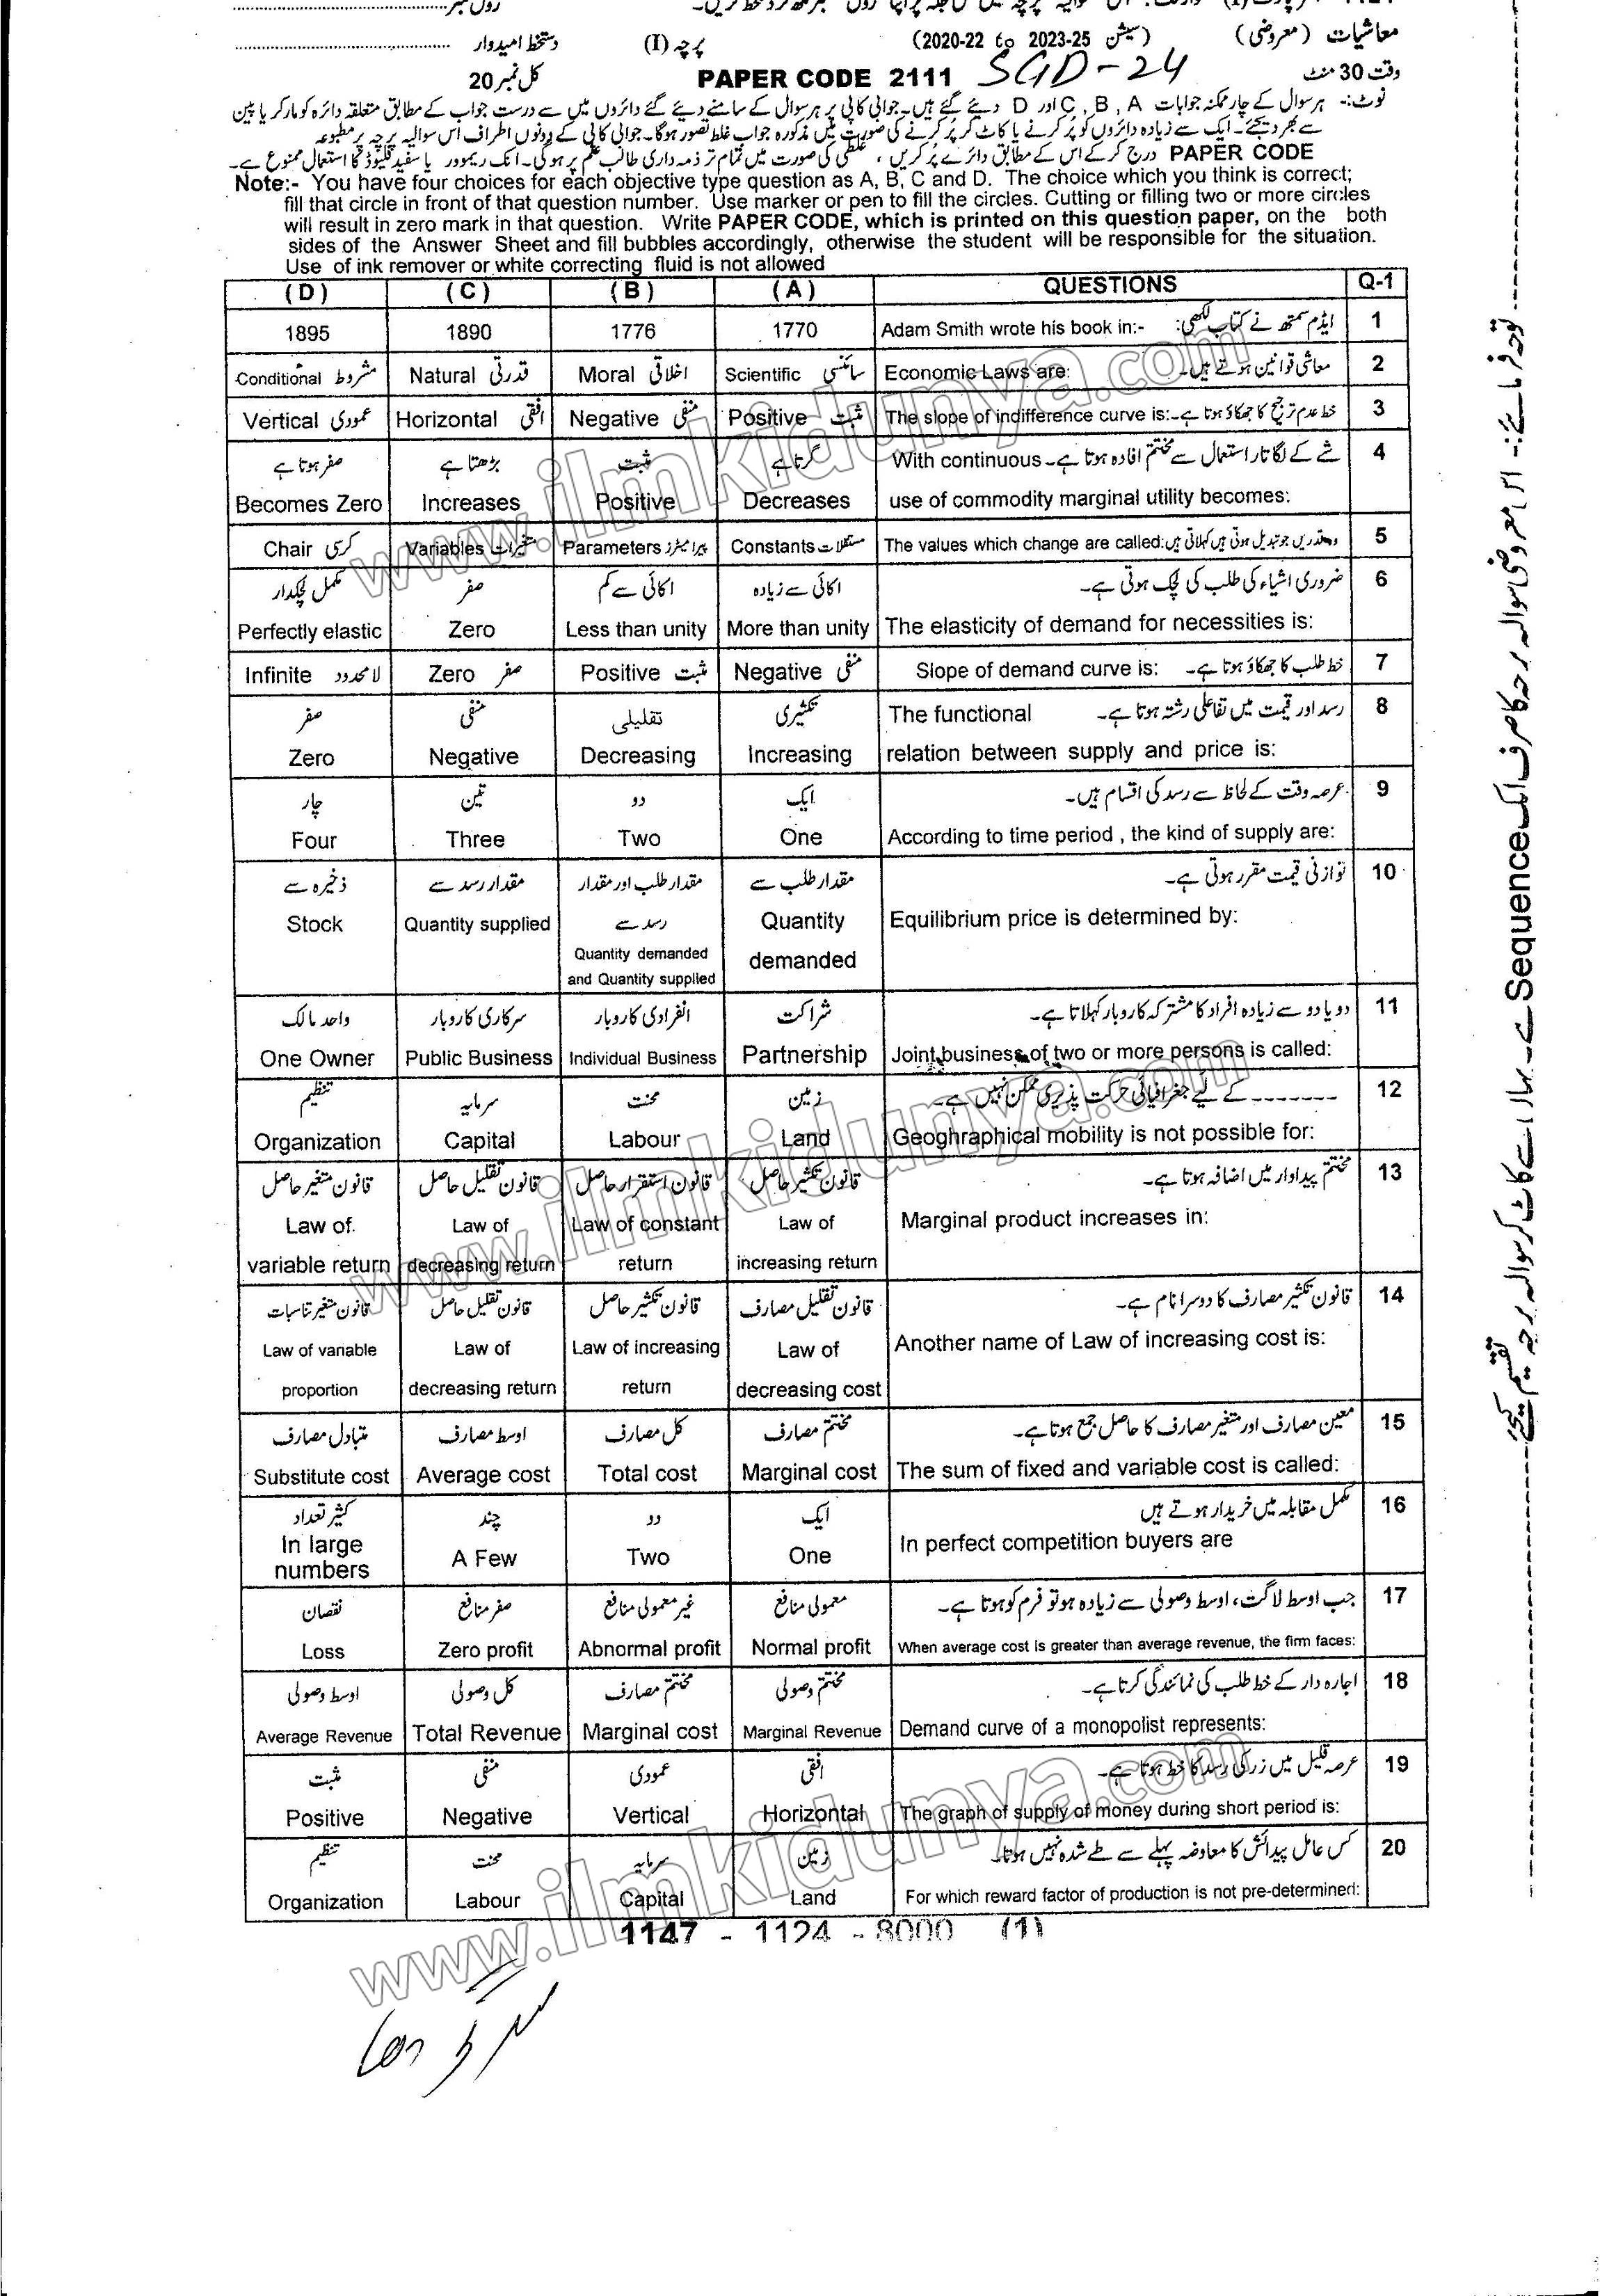 رول نمبر
معاشیات (معروضی) (سیشن 2020-22 to 2023-25) پرچہ (I) دستخط امیدوار
وقت 30 منٹ PAPER CODE 2111 SGD-24 کل نمبر 20
نوٹ:- ہر سوال کے چار ممکنہ جوابات A , B , C اور D دیئے گئے ہیں۔ جوابی کاپی پر ہر سوال کے سامنے دیئے گئے دائروں میں سے درست جواب کے مطابق متعلقہ دائرہ کو مارکر یا پین
سے بھر دیجئے۔ ایک سے زیادہ دائروں کو پُر کرنے یا کاٹ کر پُر کرنے کی صورت میں مذکورہ جواب غلط تصور ہوگا۔ جوابی کاپی کے دونوں اطراف اس سوالیہ پرچہ پر مطبوعہ
PAPER CODE درج کر کے اس کے مطابق دائرے پُر کریں ، غلطی کی صورت میں تمام تر ذمہ داری طالب علم پر ہوگی۔ انک ریموور یا سفید فلیوڈ کا استعمال ممنوع ہے۔
Note:- You have four choices for each objective type question as A, B, C and D. The choice which you think is correct;
fill that circle in front of that question number. Use marker or pen to fill the circles. Cutting or filling two or more circles
will result in zero mark in that question. Write PAPER CODE, which is printed on this question paper, on the both
sides of the Answer Sheet and fill bubbles accordingly, otherwise the student will be responsible for the situation.
Use of ink remover or white correcting fluid is not allowed
(D) (C) (B) (A) QUESTIONS Q-1
1895 1890 1776 1770 Adam Smith wrote his book in:- ایڈم سمتھ نے کتاب لکھی: 1
Conditional مشروط Natural قدرتی Moral اخلاقی Scientific سائنسی Economic Laws are: معاشی قوانین ہوتے ہیں۔ 2
Vertical عمودی Horizontal افقی Negative منفی Positive مثبت The slope of indifference curve is:- خط عدم ترجیح کا جھکاؤ ہوتا ہے۔ 3
صفر ہوتا ہے بڑھتا ہے مثبت گرتا ہے With continuous شے کے لگاتار استعمال سے مختتم افادہ ہوتا ہے۔ 4
Becomes Zero Increases Positive Decreases use of commodity marginal utility becomes:
Chair کرسی Variables متغیرات Parameters پیرامیٹرز Constants مستقلات The values which change are called: وہ قدریں جو تبدیل ہوتی ہیں کہلاتی ہیں 5
مکمل لچکدار صفر اکائی سے کم اکائی سے زیادہ ضروری اشیاء کی طلب کی لچک ہوتی ہے۔ 6
Perfectly elastic Zero Less than unity More than unity The elasticity of demand for necessities is:
Infinite لامحدود Zero صفر Positive مثبت Negative منفی Slope of demand curve is: خط طلب کا جھکاؤ ہوتا ہے۔ 7
صفر منفی تقلیلی تکثیری The functional رسد اور قیمت میں تفاعلی رشتہ ہوتا ہے۔ 8
Zero Negative Decreasing Increasing relation between supply and price is:
چار تین دو ایک عرصہ وقت کے لحاظ سے رسد کی اقسام ہیں۔ 9
Four Three Two One According to time period , the kind of supply are:
ذخیرہ سے مقدار رسد سے مقدار طلب اور مقدار مقدار طلب سے توازنی قیمت مقرر ہوتی ہے۔ 10
Stock Quantity supplied رسد سے Quantity Equilibrium price is determined by:
Quantity demanded demanded
and Quantity supplied
واحد مالک سرکاری کاروبار انفرادی کاروبار شراکت دو یا دو سے زیادہ افراد کا مشترکہ کاروبار کہلاتا ہے۔ 11
One Owner Public Business Individual Business Partnership Joint business of two or more persons is called:
تنظیم سرمایہ محنت زمین ------- کے لیے جغرافیائی حرکت پذیری ممکن نہیں ہے۔ 12
Organization Capital Labour Land Geoghraphical mobility is not possible for:
قانون متغیر حاصل قانون تقلیل حاصل قانون استقرار حاصل قانون تکثیر حاصل مختتم پیداوار میں اضافہ ہوتا ہے۔ 13
Law of. Law of Law of constant Law of Marginal product increases in:
variable return decreasing return return increasing return
قانون متغیر تناسبات قانون تقلیل حاصل قانون تکثیر حاصل قانون تقلیل مصارف قانون تکثیر مصارف کا دوسرا نام ہے۔ 14
Law of variable Law of Law of increasing Law of Another name of Law of increasing cost is:
proportion decreasing return return decreasing cost
متبادل مصارف اوسط مصارف کل مصارف مختتم مصارف معین مصارف اور متغیر مصارف کا حاصل جمع ہوتا ہے۔ 15
Substitute cost Average cost Total cost Marginal cost The sum of fixed and variable cost is called:
کثیر تعداد چند دو ایک مکمل مقابلہ میں خریدار ہوتے ہیں 16
In large numbers A Few Two One In perfect competition buyers are
نقصان صفر منافع غیر معمولی منافع معمولی منافع جب اوسط لاگت، اوسط وصولی سے زیادہ ہو تو فرم کو ہوتا ہے۔ 17
Loss Zero profit Abnormal profit Normal profit When average cost is greater than average revenue, the firm faces:
اوسط وصولی کل وصولی مختتم مصارف مختتم وصولی اجارہ دار کے خط طلب کی نمائندگی کرتا ہے۔ 18
Average Revenue Total Revenue Marginal cost Marginal Revenue Demand curve of a monopolist represents:
مثبت منفی عمودی افقی عرصہ قلیل میں زر کی رسد کا خط ہوتا ہے۔ 19
Positive Negative Vertical Horizontal The graph of supply of money during short period is:
تنظیم محنت سرمایہ زمین کس عامل پیدائش کا معاوضہ پہلے سے طے شدہ نہیں ہوتا۔ 20
Organization Labour Capital Land For which reward factor of production is not pre-determined:
1147 - 1124 - 8000 (1)
توجہ فرمائیے:- اس معروضی سوالیہ پرچہ کا صرف ایک Sequence ہے۔ یہاں سے کاٹ کر سوالیہ پرچہ تقسیم کیجئے
www.ilmkidunya.com
www.ilmkidunya.com
www.ilmkidunya.com